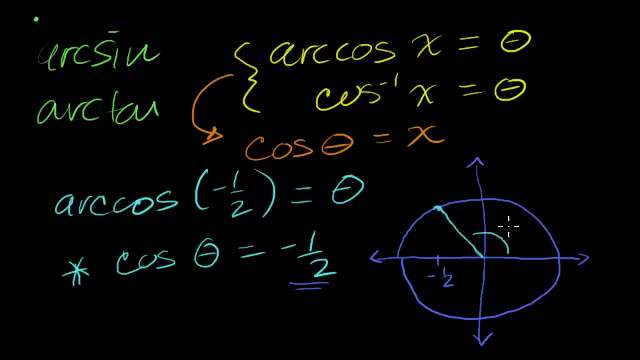 arcsin
arctan
arccos x = θ
cos⁻¹ x = θ
cos θ = x
arccos (-1/2) = θ
* cos θ = -1/2
-1/2